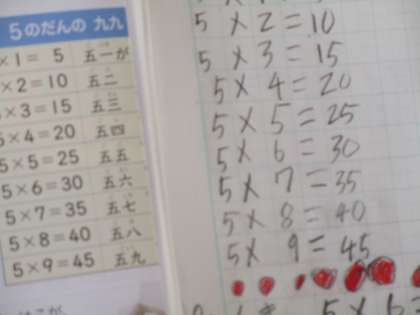 5のだんの 九九
×1= 5 五一が
×2=10 五二
×3=15 五三
5×4=20 五四
5×5=25 五五
5×6=30 五六
5×7=35 五七
5×8=40 五八
5×9=45 五九
5×2=10
5×3=15
5×4=20
5×5=25
5×6=30
5×7=35
5×8=40
5×9=45